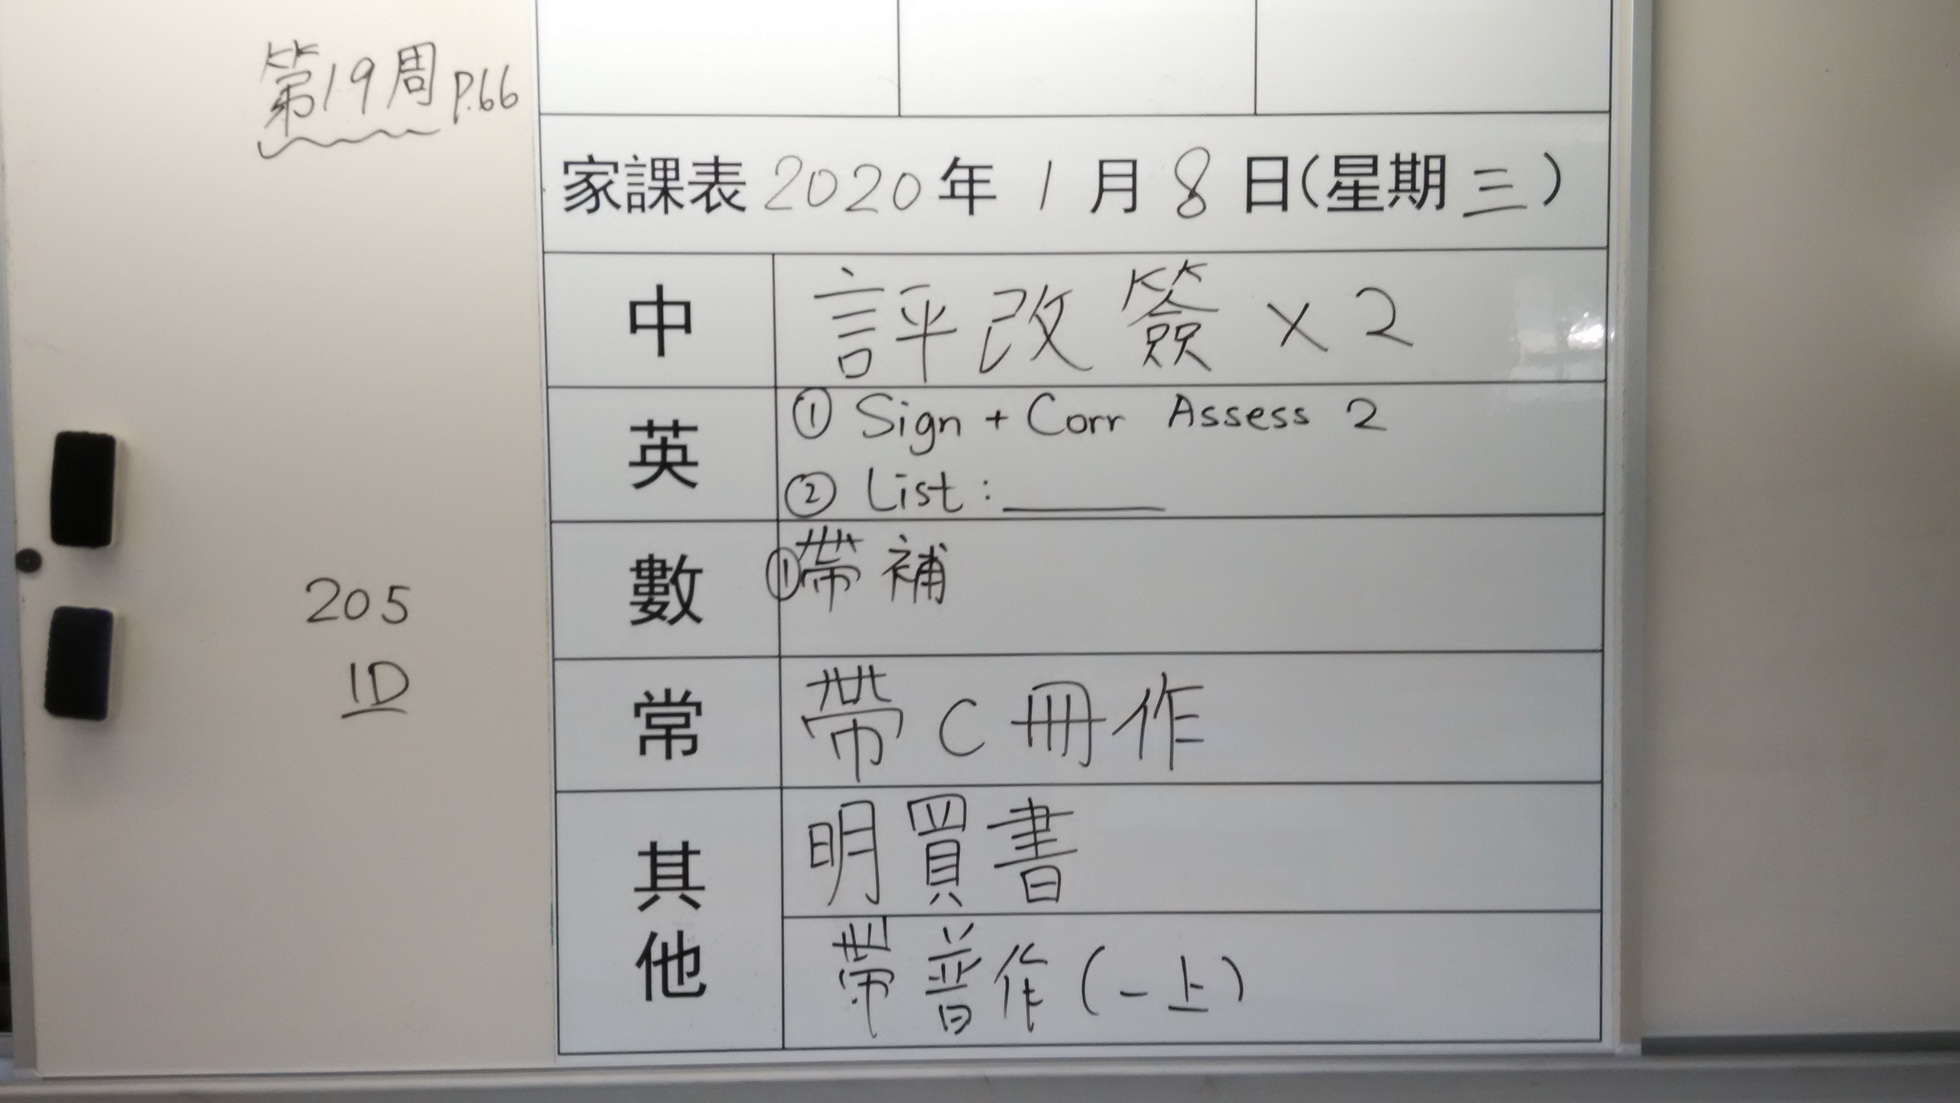 第19周 P.66
家課表 2020年 1月 8日(星期三)
中 評改簽 x 2
英 ① Sign + Corr Assess 2
② List : ______
數 ①帶補
常 帶C冊作
其他 明買書
帶普作(一上)
205
1D